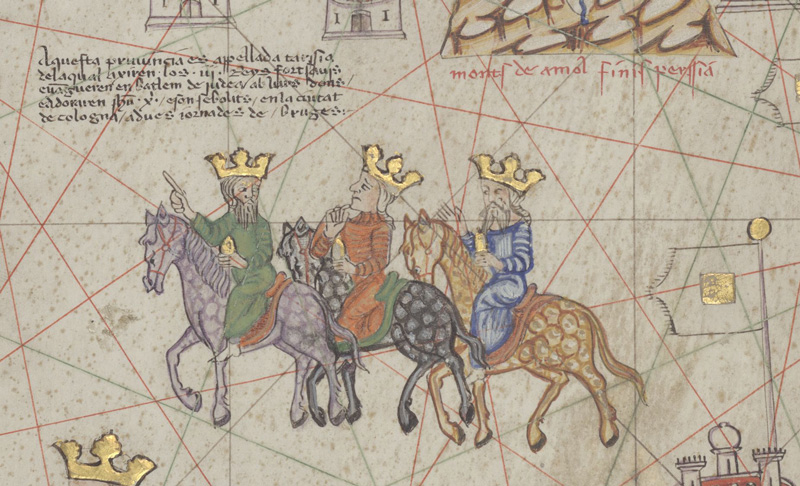 Aquesta provincia es apellada tarssia
delaqual axiren los .iii. Reys fort savis
e vagueren en batlem de judea / ab lurs dons /
e adoraren ihu x̄p / e son sebolits / en la ciutat
de cologna / a dues iornades de / bruges:
monts de amol finis perssia